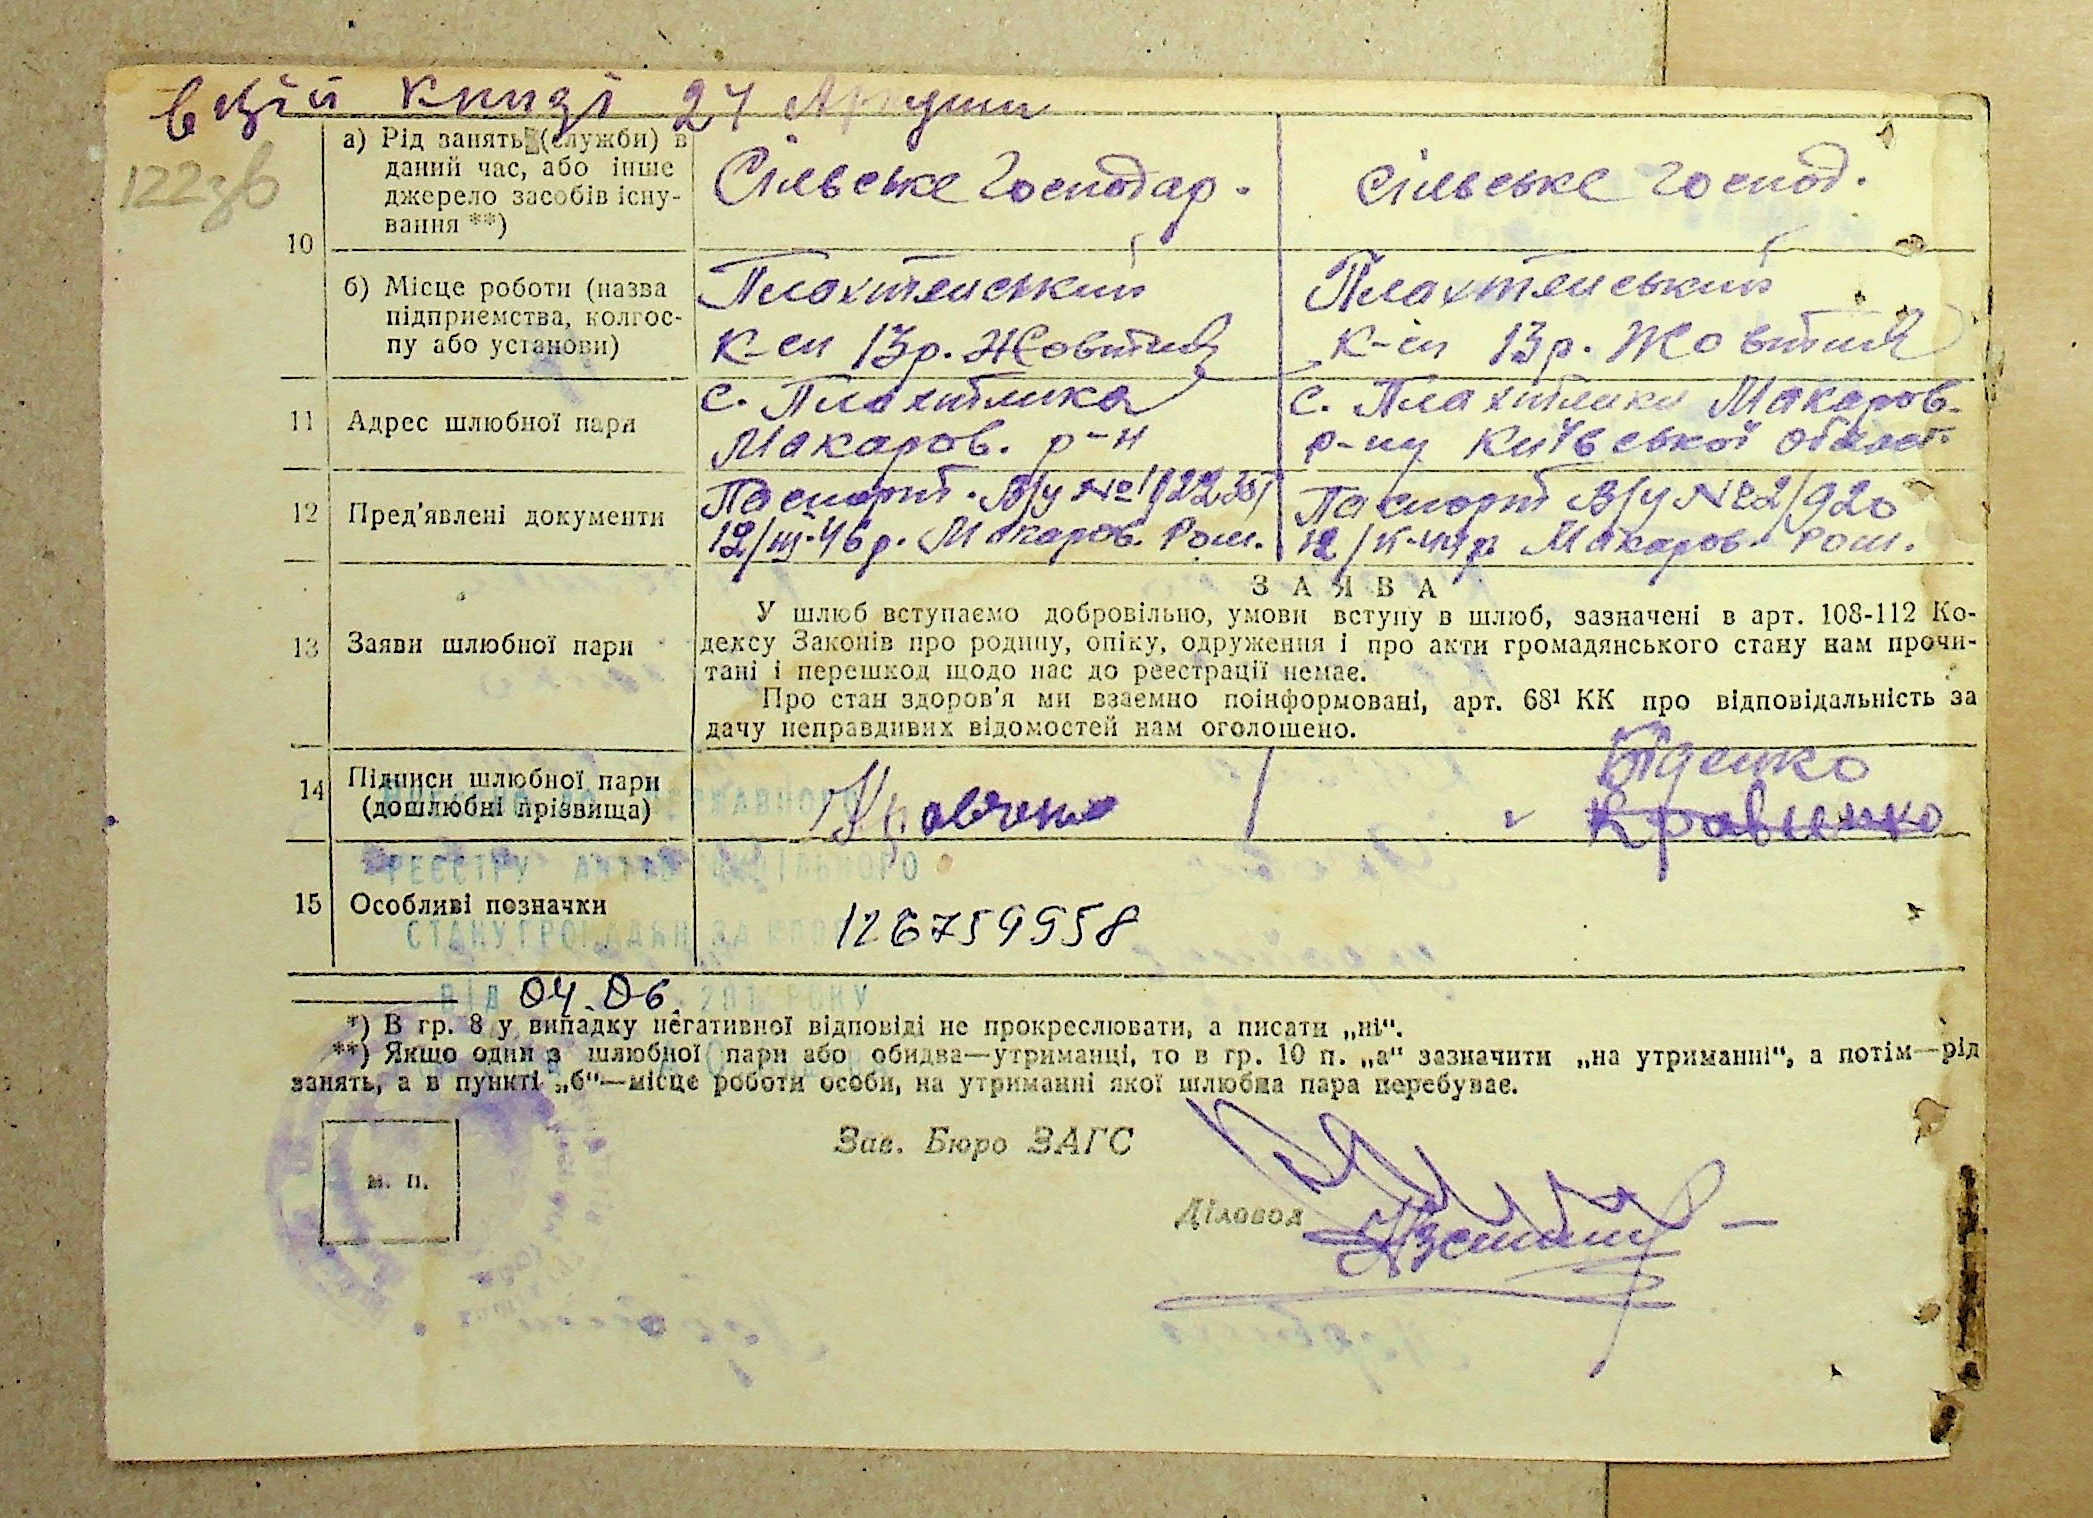 в цій книзі 24 Аркуши
122зв
10
а) Рід занять (служби) в
даний час, або інше
джерело засобів існу-
вання **)
Сільське Господар.
сільське господ.
б) Місце роботи (назва
підприємства, колгос-
пу або установи)
Плахтянський
к-сп 13 р. Жовтня
Плахтянський
к-сп 13 р. Жовтня
11
Адрес шлюбної пари
с. Плахтянка
Макаров. р-н
с. Плахтянки Макаров.
р-ну Київської област.
12
Пред'явлені документи
Паспорт.
12/III-46 р. Макаров. Ром.
Паспорт
Макаров. Ром.
З А Я В А
13
Заяви шлюбної пари
У шлюб вступаємо добровільно, умови вступу в шлюб, зазначені в арт. 108-112 Ко-
дексу Законів про родину, опіку, одруження і про акти громадянського стану нам прочи-
тані і перешкод щодо нас до реєстрації немає.
Про стан здоров'я ми взаємно поінформовані, арт. 68¹ КК про відповідальність за
дачу неправдивих відомостей нам оголошено.
14
Підписи шлюбної пари
(дошлюбні прізвища)
Кравченко
Біденко
Кравченко
ДЕРЖАВНОГО
РЕЄСТРУ АКТІВ ЦИВІЛЬНОГО
15
Особливі позначки
126759958
СТАНУ ГРОМАДЯН ЗА
ВІД 04.06. 201 РОКУ
*) В гр. 8 у випадку негативної відповіді не прокреслювати, а писати „ні“.
**) Якщо один з шлюбної пари або обидва—утриманці, то в гр. 10 п. „а“ зазначити „на утриманні“, а потім—рід
занять, а в пункті „б“—місце роботи особи, на утриманні якої шлюбна пара перебуває.
Зав. Бюро ЗАГС
м. п.
Діловод